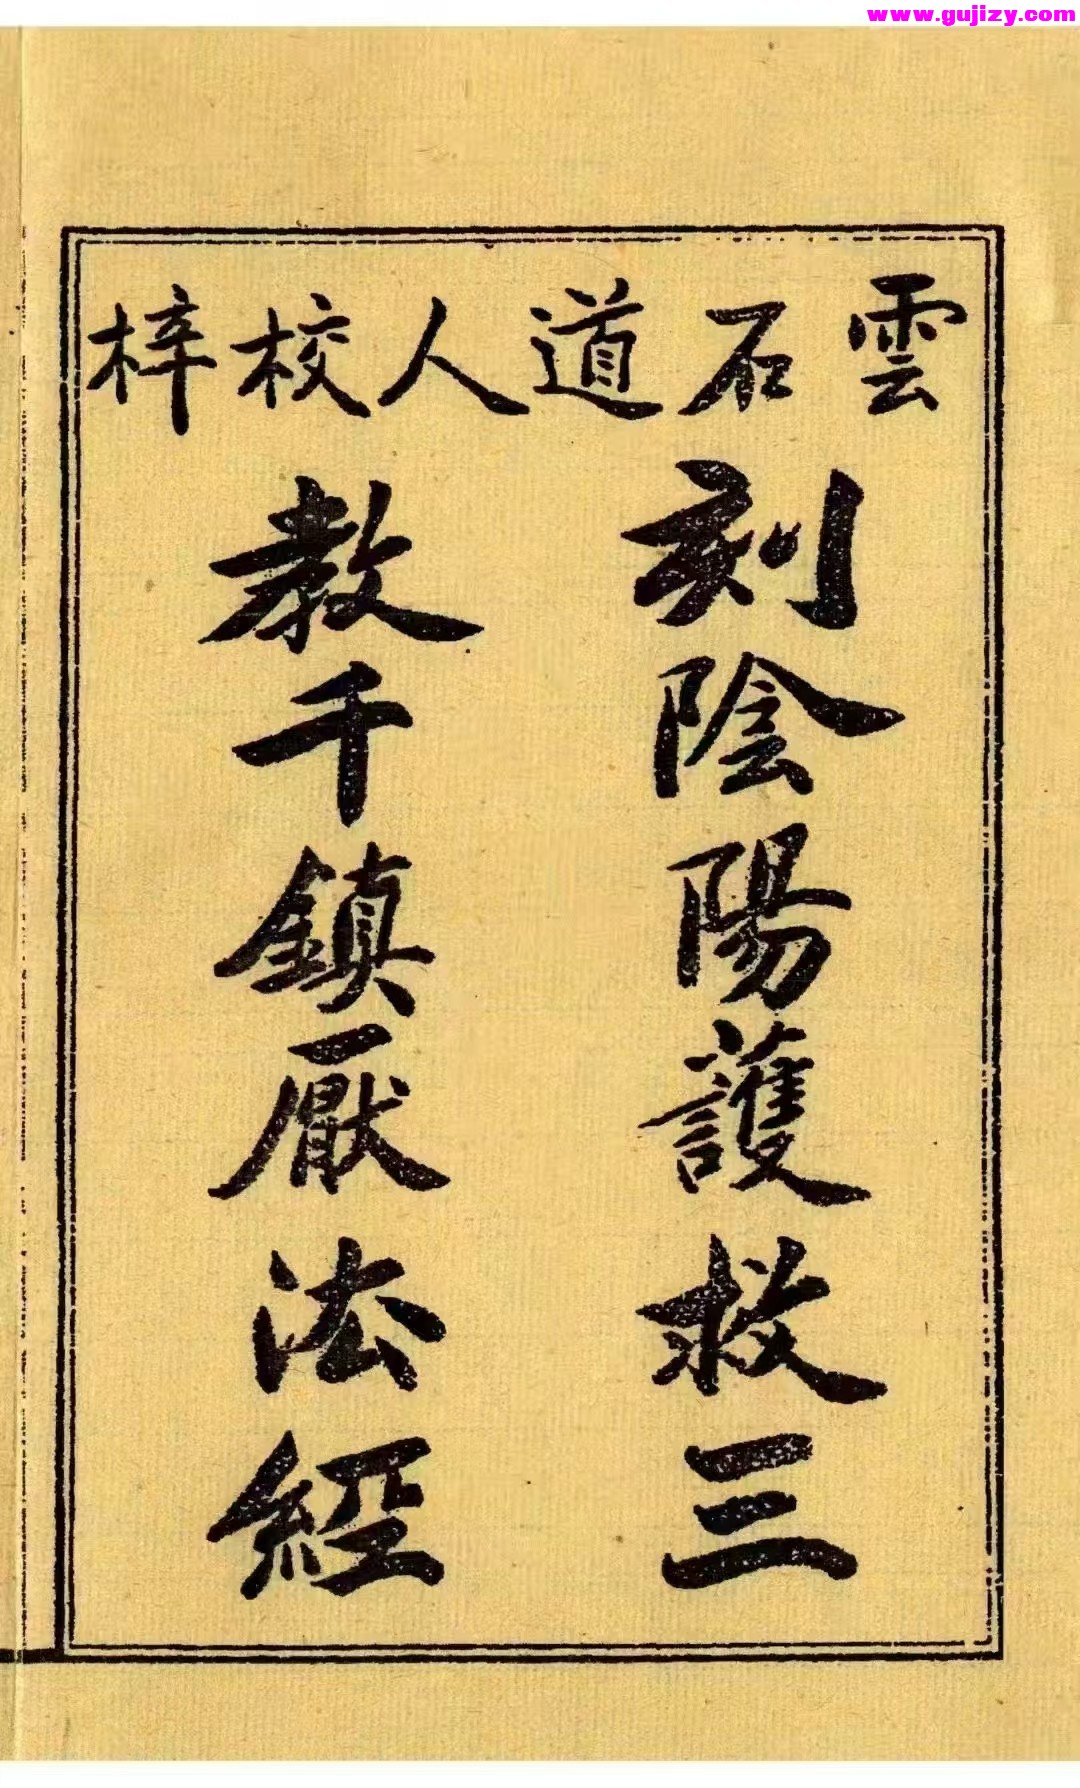 www.gujizy.com
雲石道人校梓
刻陰陽護救三
教千鎮厭法經